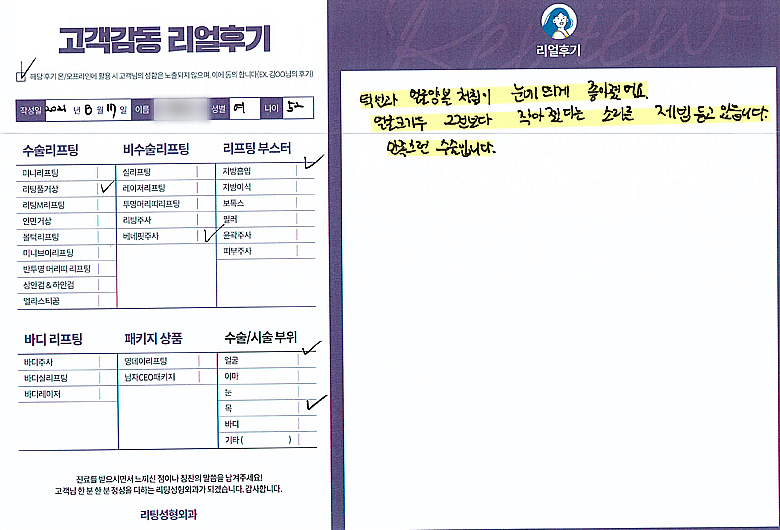 고객감동 리얼후기
해당 후기 온/오프라인에 활용 시 고객님의 성함은 노출되지 않으며, 이에 동의 합니다(EX. 김OO님의 후기)
작성일 2021 년 8 월 17 일 이름 성별 여 나이 52
수술리프팅
미니리프팅
리팅풀거상
리팅M리프팅
안면거상
볼턱리프팅
미니브이리프팅
반투명 머리띠 리프팅
상안검 & 하안검
엘라스티꿈
비수술리프팅
실리프팅
레이저리프팅
투명머리띠리프팅
리팅주사
베네핏주사
리프팅 부스터
지방흡입
지방이식
보톡스
필러
윤곽주사
피부주사
바디 리프팅
바디주사
바디실리프팅
바디레이저
패키지 상품
영데이리프팅
남자CEO패키지
수술/시술 부위
얼굴
이마
눈
목
바디
기타 ( )
진료를 받으시면서 느끼신 점이나 칭찬의 말씀을 남겨주세요!
고객님 한 분 한 분 정성을 다하는 리팅성형외과가 되겠습니다. 감사합니다.
리팅성형외과
Review
리얼후기
턱선과 얼굴양볼 처짐이 눈에 띄게 좋아졌어요.
얼굴크기두 그전보다 작아 졌다는 소리를 제법 듣고 있습니다.
만족스런 수술입니다.